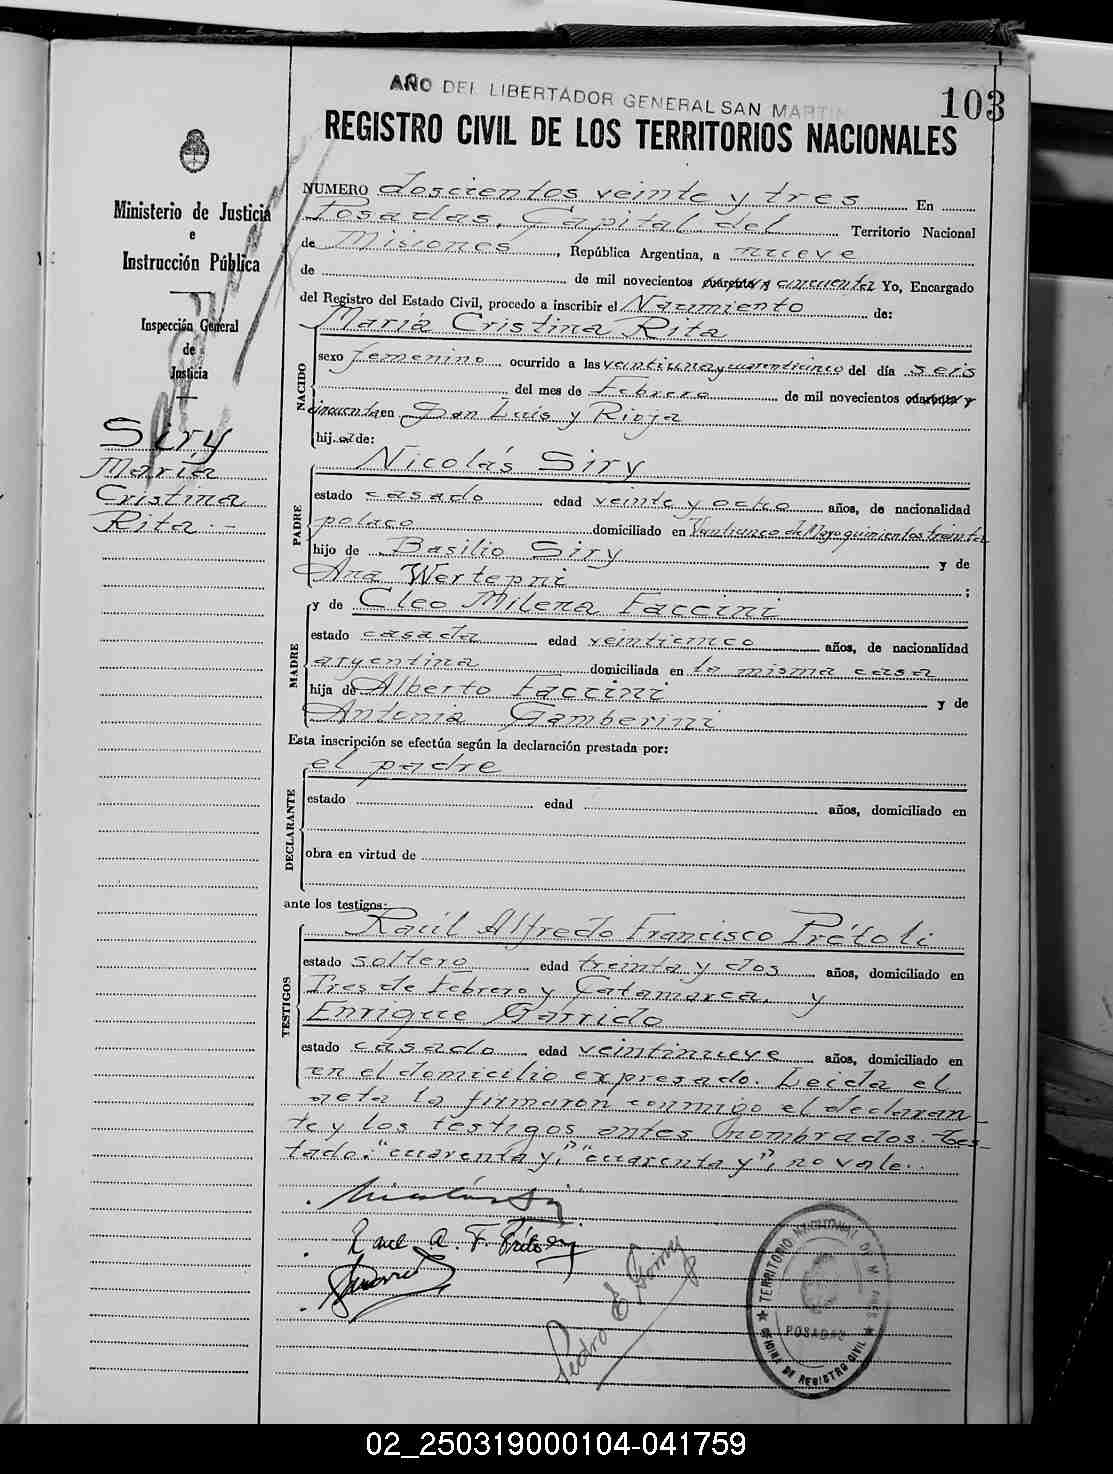 AÑO DEL LIBERTADOR GENERAL SAN MARTIN
103
REGISTRO CIVIL DE LOS TERRITORIOS NACIONALES
Ministerio de Justicia
e
Instrucción Pública
Inspección General
de
Justicia
Siry
María
Cristina
Rita.-
NUMERO doscientos veinte y tres En
Posadas, Capital del Territorio Nacional
de Misiones, República Argentina, a nueve
de de mil novecientos cuarenta y cincuenta Yo, Encargado
del Registro del Estado Civil, procedo a inscribir el Nacimiento de:
María Cristina Rita
NACIDO
sexo femenino ocurrido a las veintiuna y cuarenticinco del día seis
del mes de Febrero de mil novecientos cuarenta y
cincuenta en San Luis y Rioja
hij..a de:
Nicolás Siry
PADRE
estado casado edad veinte y ocho años, de nacionalidad
polaco domiciliado en Veinticinco de Mayo quinientos treinta
hijo de Basilio Siry y de
Ana Wertepni ;
y de Cleo Milena Faccini
MADRE
estado casada edad veinticinco años, de nacionalidad
argentina domiciliada en la misma casa
hija de Alberto Faccini y de
Antonia Gamberini
Esta inscripción se efectúa según la declaración prestada por:
el padre
DECLARANTE
estado edad años, domiciliado en
obra en virtud de
ante los testigos:
Raúl Alfredo Francisco Prétoli
TESTIGOS
estado soltero edad treinta y dos años, domiciliado en
Tres de Febrero y Catamarca, y
Enrique Garrido
estado casado edad veintinueve años, domiciliado en
en el domicilio expresado. Leida el
acta la firmaron conmigo el declaran-
te y los testigos antes nombrados. Tes-
tado: "cuarenta y", "cuarenta y", no vale..
Raul A. F.
Pedro E
TERRITORIO NACIONAL DE MISIONES
POSADAS
OFICINA DE REGISTRO CIVIL
02_250319000104-041759